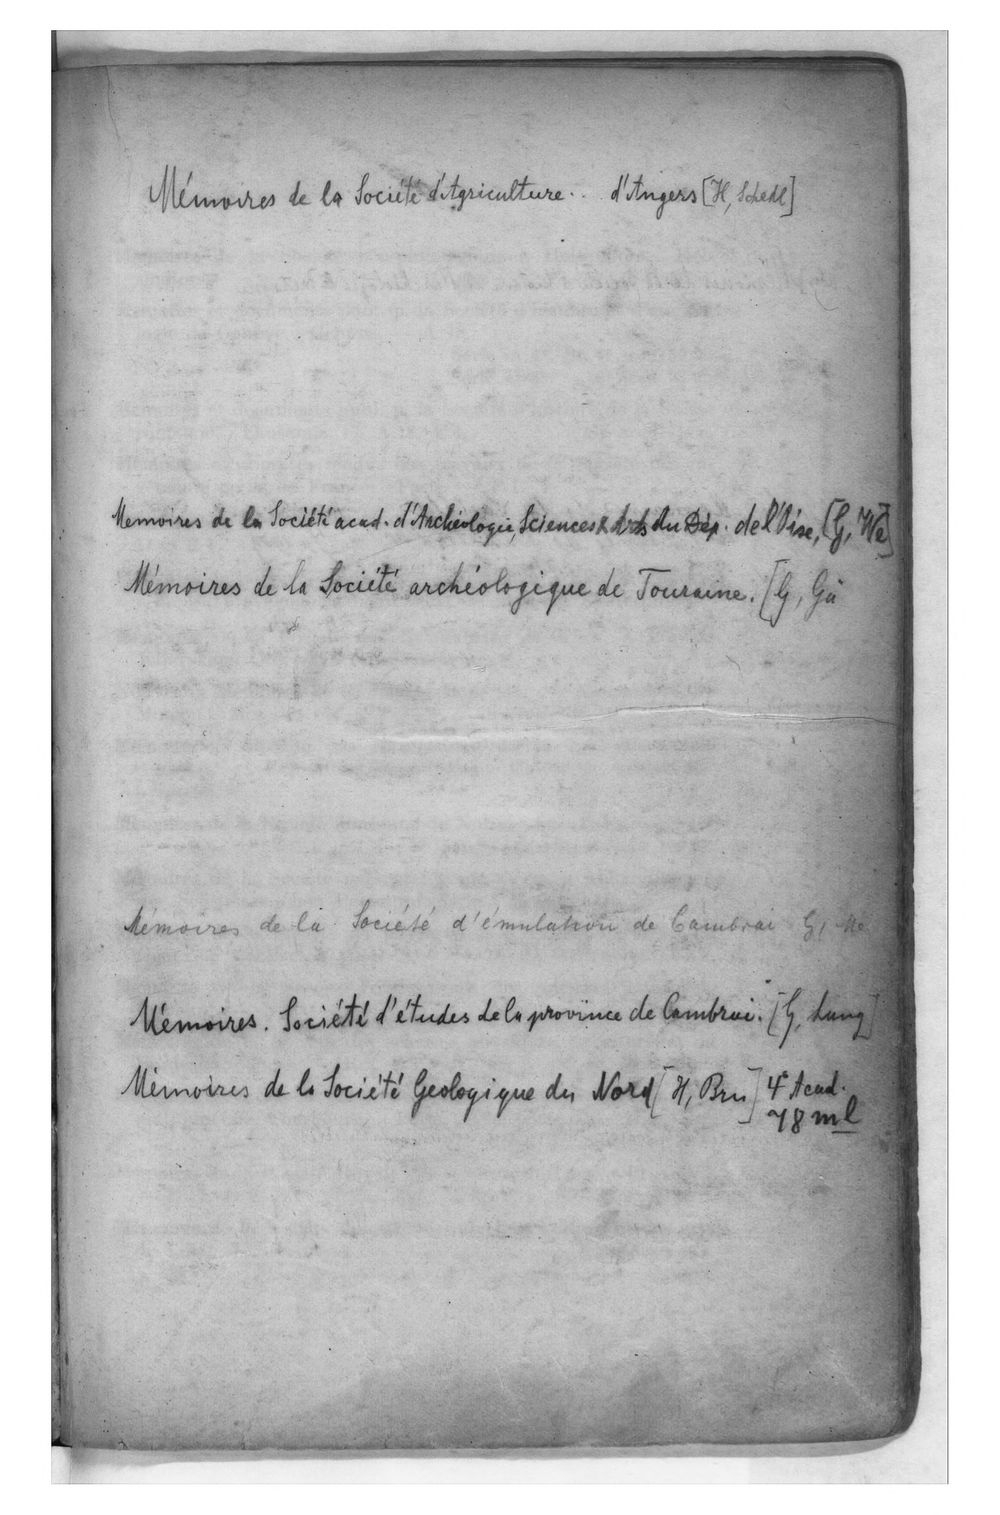 Mémoires de la Société d'Agriculture.. d'Angers [H, Schedl]
Memoires de la Société acad. d'Archéologie, Sciences & Arts du Dép. de l'Oise, [G, We]
Mémoires de la Société archéologique de Touraine. [G, Gü
Mémoires de la Société d'émulation de Cambrai G, We
Mémoires. Société d'études de la province de Cambrai. [G, Lang]
Mémoires de la Société Geologique du Nord [H, Bru] 4° Acad.
78 ml